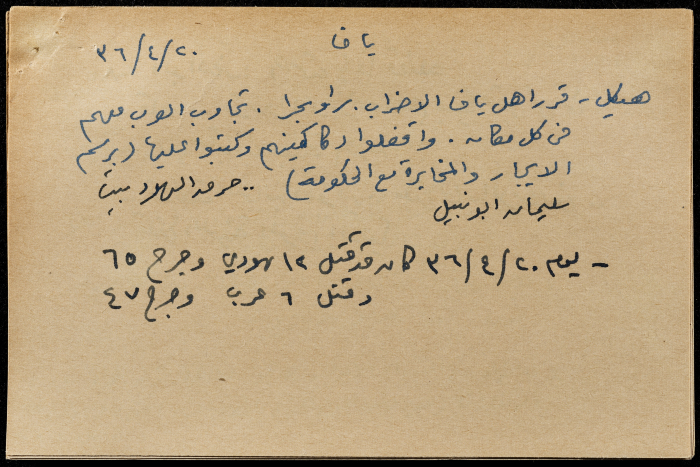 يافا ٣٦/٤/٢٠
هيكل - قرر اهل يافا الاضراب. برا وبحرا. تجاوب العرب معهم
في كل مكان. واقفلوا دكاكينهم وكتبوا عليها (برسم
الايجار والمخابرة مع الحكومة) .. حرق اليهود بيت
سليمان ابو نبيل
- يوم ٣٦/٤/٢٠ كان قد قتل ١٢ يهودي وجرح ٦٥
وقتل ٦ عرب وجرح ٤٧